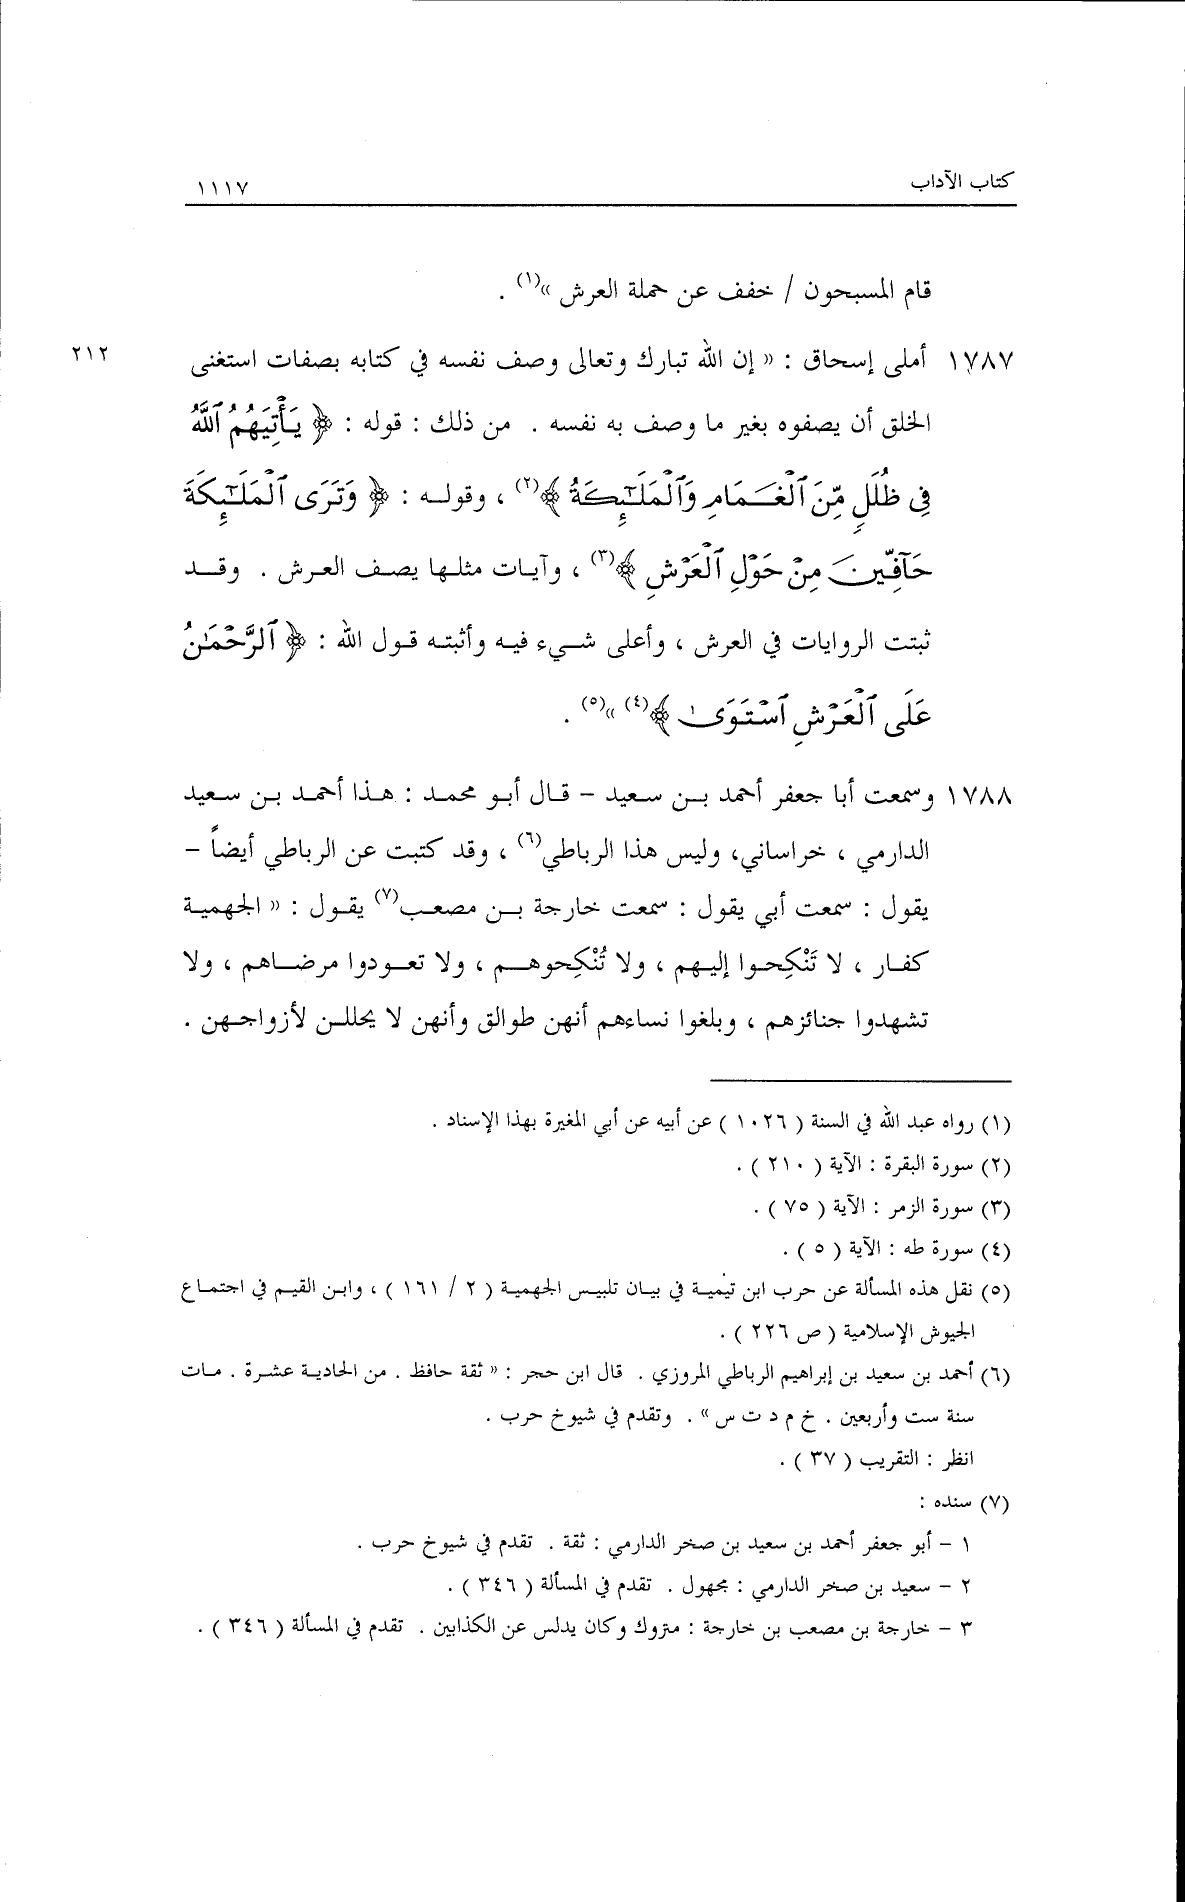 كتاب الآداب ١١١٧
قام المسبحون / خفف عن حملة العرش »(١) .
١٧٨٧ أملى إسحاق : « إن الله تبارك وتعالى وصف نفسه في كتابه بصفات استغنى ٢١٢
الخلق أن يصفوه بغير ما وصف به نفسه . من ذلك : قوله : ﴿ يَأْتِيَهُمُ ٱللَّهُ
فِى ظُلَلٍ مِّنَ ٱلْغَمَامِ وَٱلْمَلَـٰٓئِكَةُ ﴾(٢) ، وقوله : ﴿ وَتَرَى ٱلْمَلَـٰٓئِكَةَ
حَآفِّينَ مِنْ حَوْلِ ٱلْعَرْشِ ﴾(٣) ، وآيات مثلها يصف العرش . وقد
ثبتت الروايات في العرش ، وأعلى شيء فيه وأثبته قول الله : ﴿ ٱلرَّحْمَـٰنُ
عَلَى ٱلْعَرْشِ ٱسْتَوَىٰ ﴾(٤) »(٥) .
١٧٨٨ وسمعت أبا جعفر أحمد بن سعيد – قال أبو محمد : هذا أحمد بن سعيد
الدارمي ، خراساني، وليس هذا الرباطي(٦) ، وقد كتبت عن الرباطي أيضاً –
يقول : سمعت أبي يقول : سمعت خارجة بن مصعب(٧) يقول : « الجهمية
كفار ، لا تَنْكِحوا إليهم ، ولا تُنْكِحوهم ، ولا تعودوا مرضاهم ، ولا
تشهدوا جنائزهم ، وبلغوا نساءهم أنهن طوالق وأنهن لا يحللن لأزواجهن .
(١) رواه عبد الله في السنة ( ١٠٢٦ ) عن أبيه عن أبي المغيرة بهذا الإسناد .
(٢) سورة البقرة : الآية ( ٢١٠ ) .
(٣) سورة الزمر : الآية ( ٧٥ ) .
(٤) سورة طه : الآية ( ٥ ) .
(٥) نقل هذه المسألة عن حرب ابن تيمية في بيان تلبيس الجهمية ( ٢ / ١٦١ ) ، وابن القيم في اجتماع
الجيوش الإسلامية ( ص ٢٢٦ ) .
(٦) أحمد بن سعيد بن إبراهيم الرباطي المروزي . قال ابن حجر : « ثقة حافظ . من الحادية عشرة . مات
سنة ست وأربعين . خ م د ت س » . وتقدم في شيوخ حرب .
انظر : التقريب ( ٣٧ ) .
(٧) سنده :
١ – أبو جعفر أحمد بن سعيد بن صخر الدارمي : ثقة . تقدم في شيوخ حرب .
٢ – سعيد بن صخر الدارمي : مجهول . تقدم في المسألة ( ٣٤٦ ) .
٣ – خارجة بن مصعب بن خارجة : متروك وكان يدلس عن الكذابين . تقدم في المسألة ( ٣٤٦ ) .